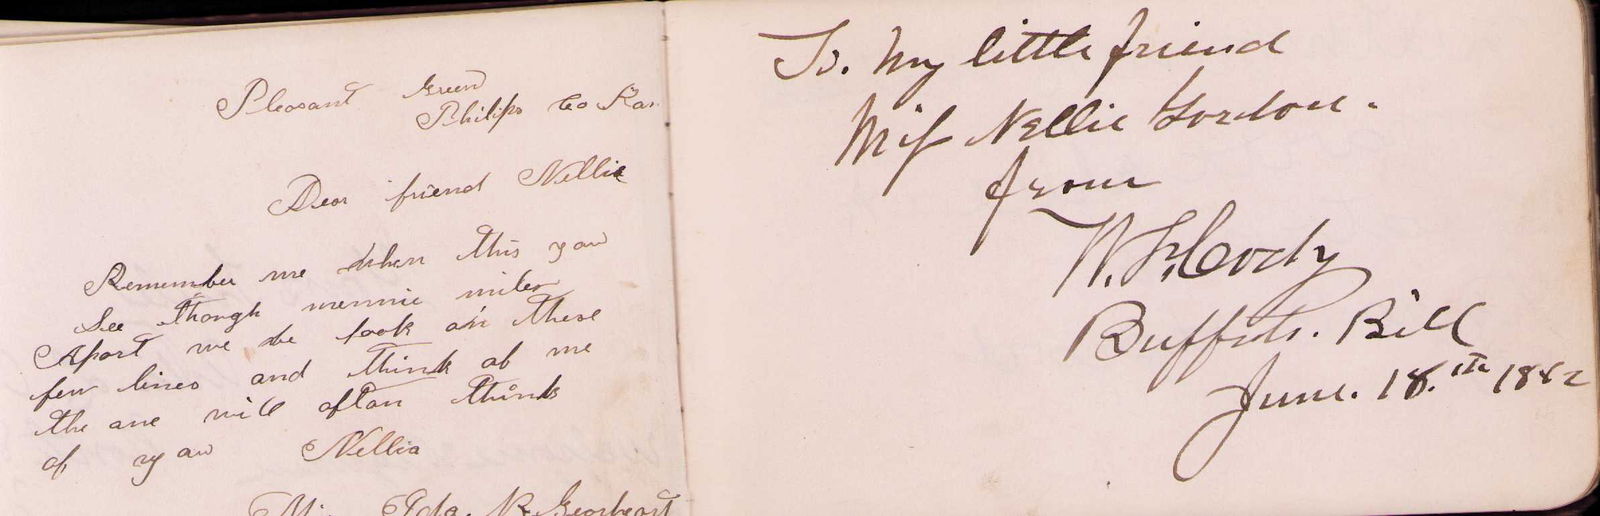 Pleasant Green
Philips Co Kan
Dear friend Nellie
Remember me when this yow
See though mennie miles
Apart we be look on these
few lines and think of me
the one will oftan think
of yow Nellia
Ida. R. Gearheart
To. My little friend
Miss Nellie Gordon.
from
W. F. Cody
Buffalo. Bill
June. 18.th 1882